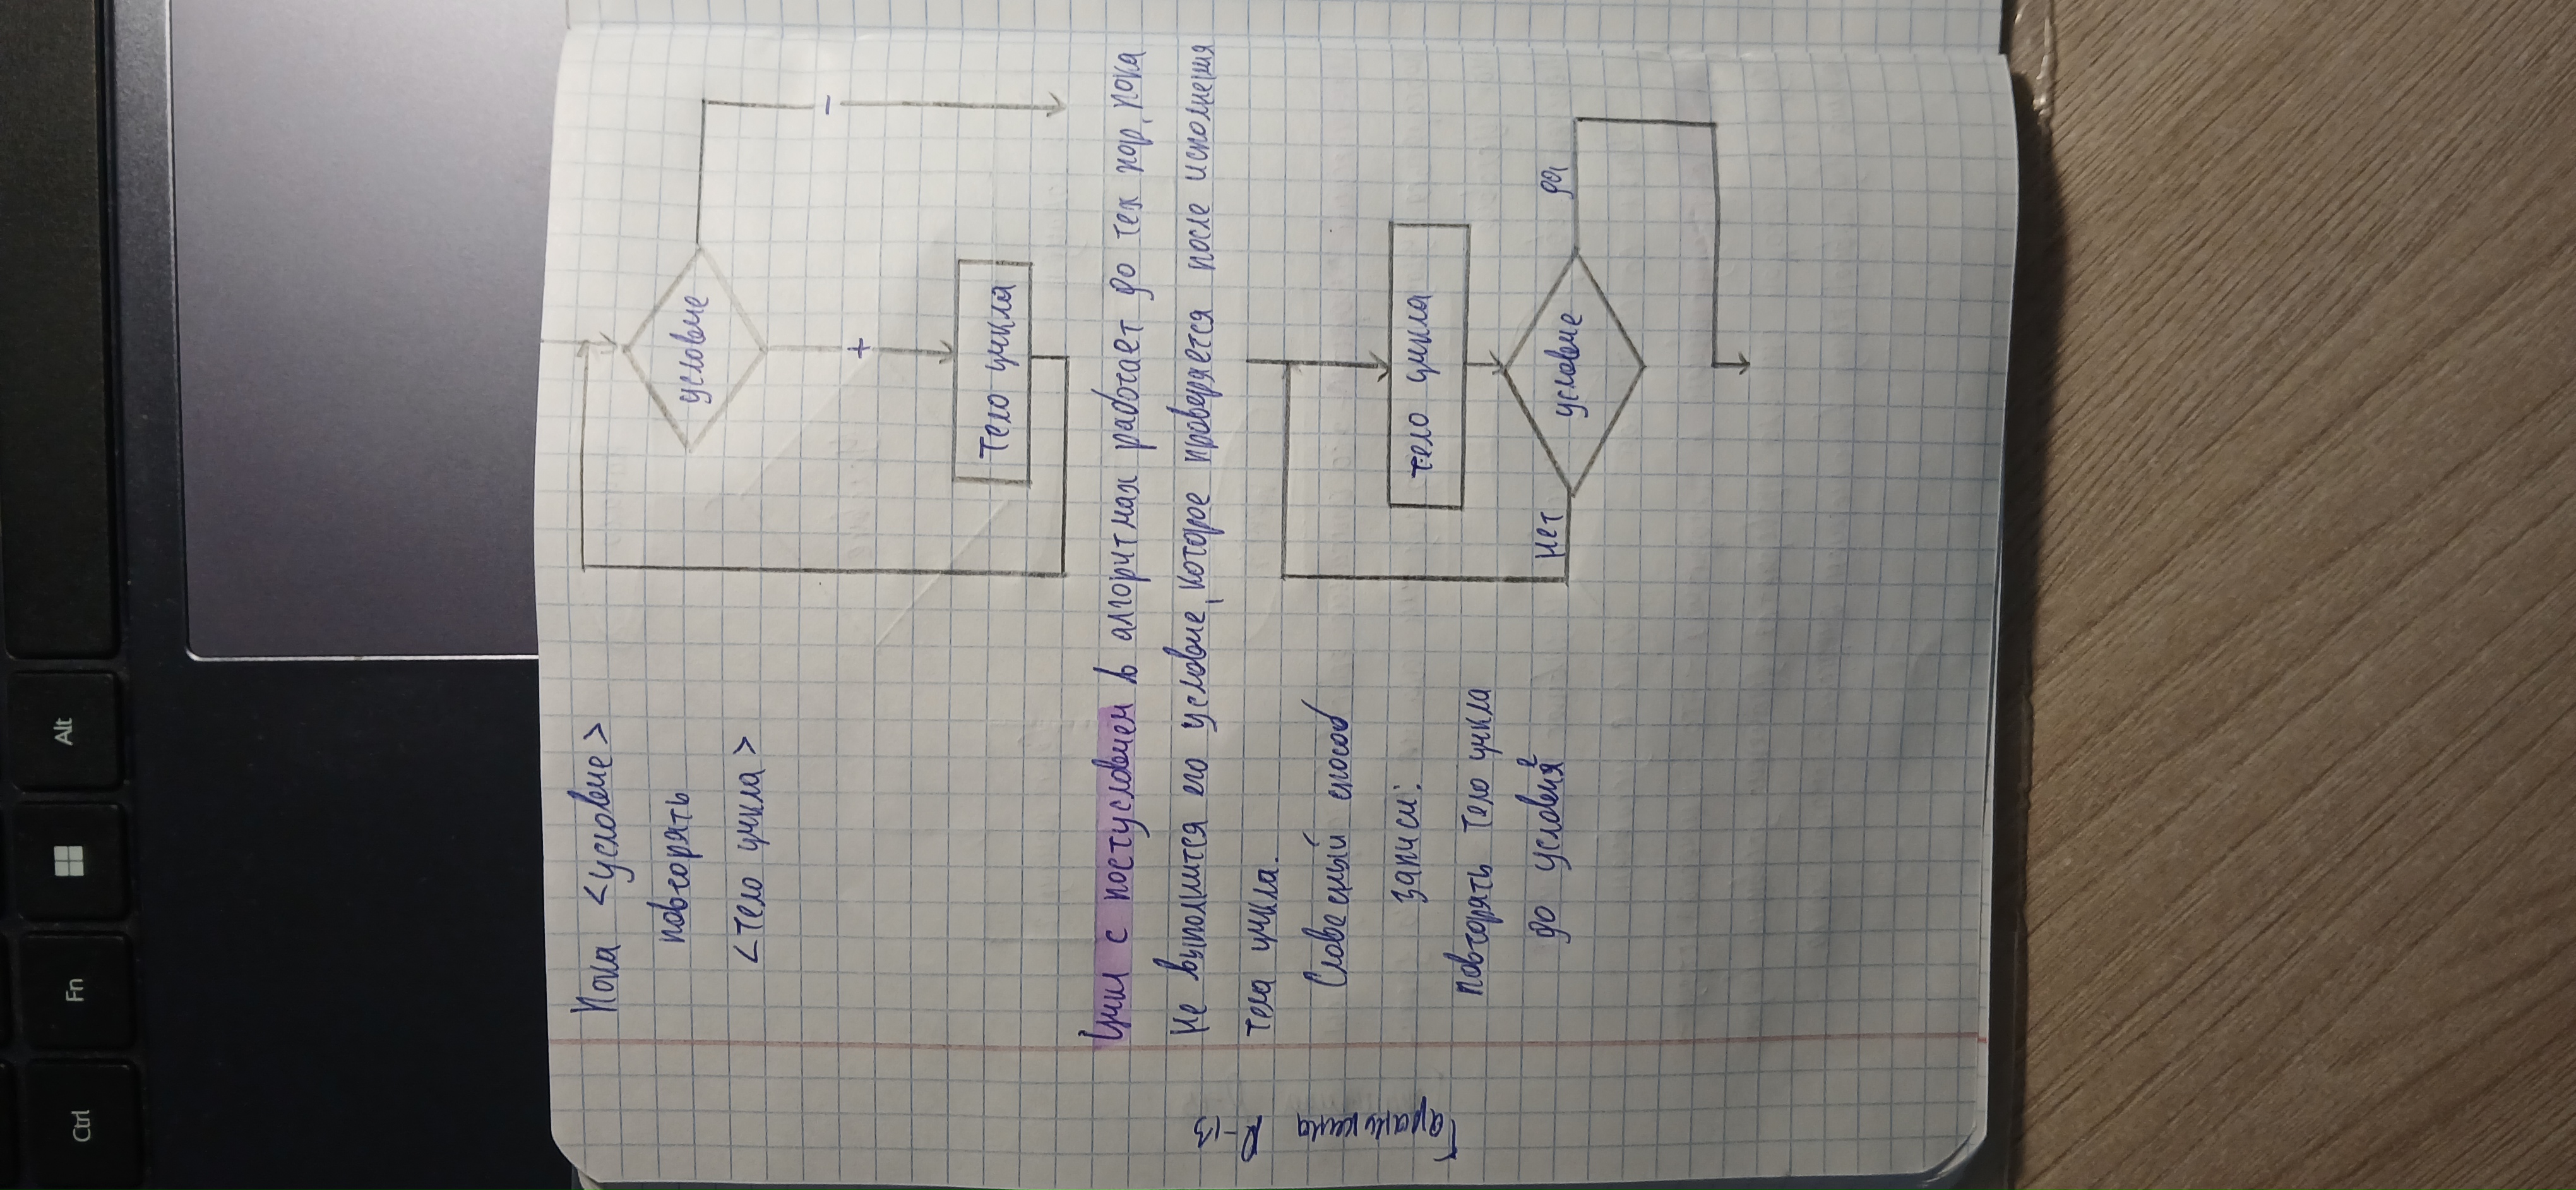 Пока <условие>
повторять
<тело цикла>
условие
+
-
Тело цикла
Цикл с постусловием в алгоритмах работает до тех пор, пока
не выполнится его условие, которое проверяется после исполнения
тела цикла.
Словесный способ
записи:
повторять тело цикла
до условие
тело цикла
условие
нет
да
Ctrl
Fn
Alt